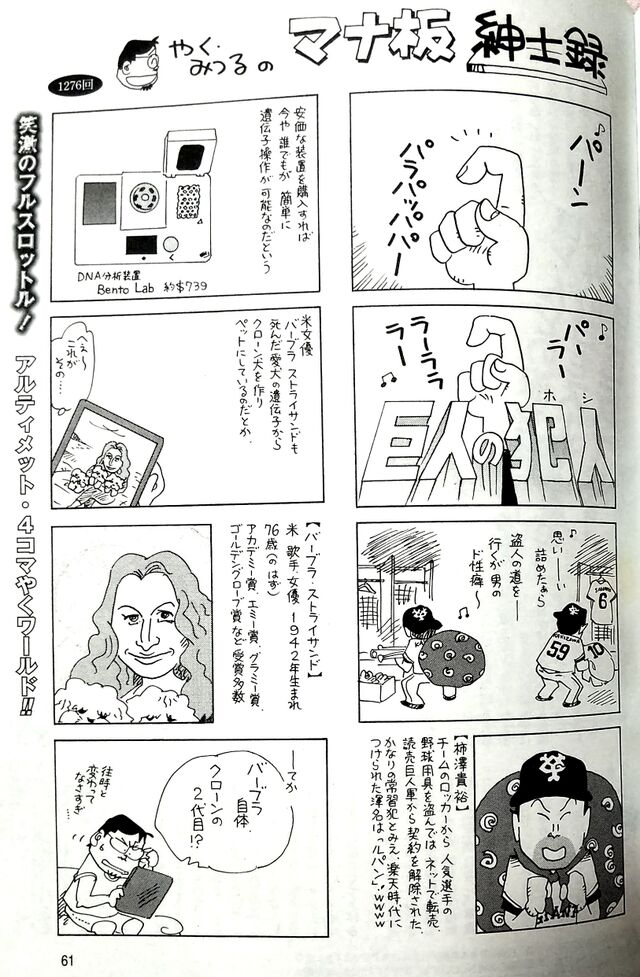 やく・
みつるの
マナ板
紳士録
1276回
笑激のフルスロットル！
アルティメット・4コマやくワールド!!
パーン
パラパッパパー
パーラー
ラーララ
ラー
巨人の
ホシ
犯人
思いーー
詰めたぁら
盗人の道をー
行くが男の
ド性癖〜
6
10
59
【柿澤貴裕】
チームのロッカーから人気選手の
野球用具を盗んではネットで転売、
読売巨人軍から契約を解除された。
かなりの常習犯とみえ、楽天時代に
つけられた渾名は「ルパン」！www
安価な装置を購入すれば
今や誰でもが簡単に
遺伝子操作が可能なのだという
DNA分析装置
Bento Lab 約$739
米女優
バーブラ ストライサンドも
死んだ愛犬の遺伝子から
クローン犬を作り
ペットにしているのだとか。
へぇ〜
これが
その…
【バーブラ・ストライサンド】
米 歌手、女優 1942年生まれ
76歳(のはず)
アカデミー賞、エミー賞、グラミー賞、
ゴールデングローブ賞など受賞多数
ーてか
バーブラ
自体、
クローンの
2代目!?
往時と
変わって
なさすぎ…
61